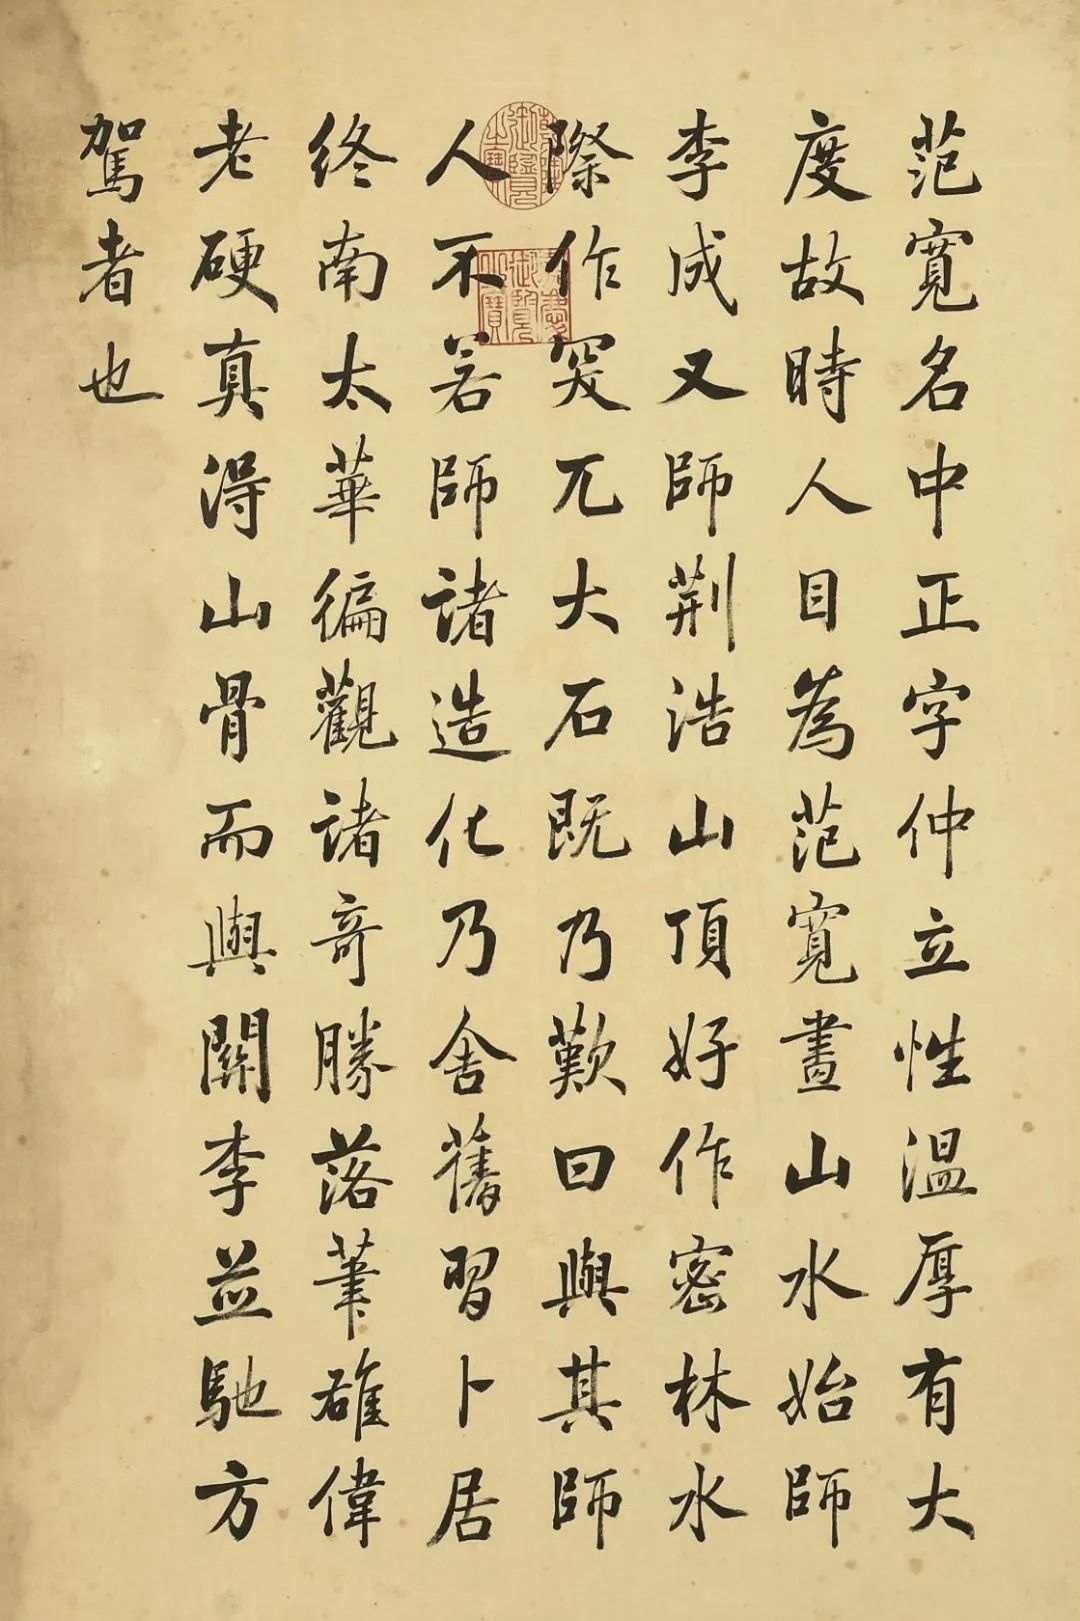 范寬名中正字仲立性溫厚有大
度故時人目為范寬畫山水始師
李成又師荆浩山頂好作密林水
際作突兀大石既乃歎曰與其師
人不若師諸造化乃舍舊習卜居
終南太華徧觀諸竒勝落筆雄偉
老硬真得山骨而與關李並馳方
駕者也